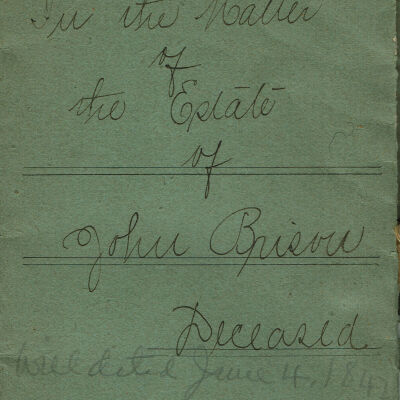 In the Matter
of
the Estate
of
John Brison
Deceased.
Will dated June 4, 1842